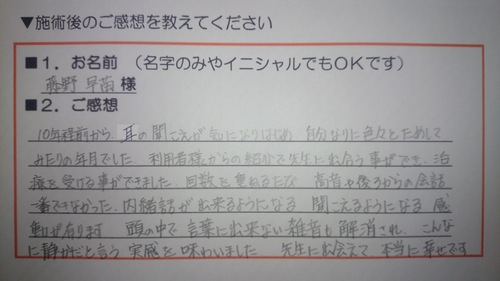 ▼施術後のご感想を教えてください
■1．お名前 （名字のみやイニシャルでもOKです）
藤野 早苗 様
■2．ご感想
10年程前から、耳の聞こえが気になりはじめ 自分なりに色々とためして
みたりの年月でした。利用者様からの紹介で先生に出会う事ができ、治
療を受ける事ができました。回数を重ねるたび 高音や後ろからの会話
一番できなかった。内緒話が出来るようになる 聞こえるようになる 感
動が有ります 頭の中で 言葉に出来ない雑音も 解消され、こんな
に静かだと言う 実感を味わいました 先生に出会えて、本当に幸せです